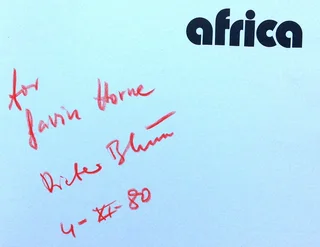 africa
for
Gavin Horne
Dieter Blum
4-XI-80